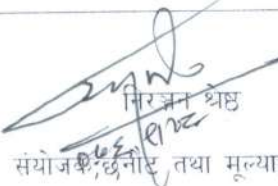 निरञ्जन श्रेष्ठ
संयोजक, छनौट तथा मूल्या